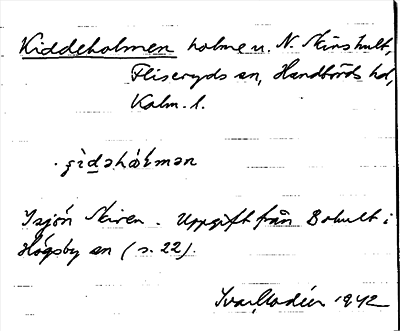 Kiddeholmen holme u. N. Skinshult,
Fliseryds sn, Handbörds hd,
Kalm. l.
I sjön Skiren. Uppgift från Bohult i
Högsby sn (s. 22).
Ivar Modéer 1942